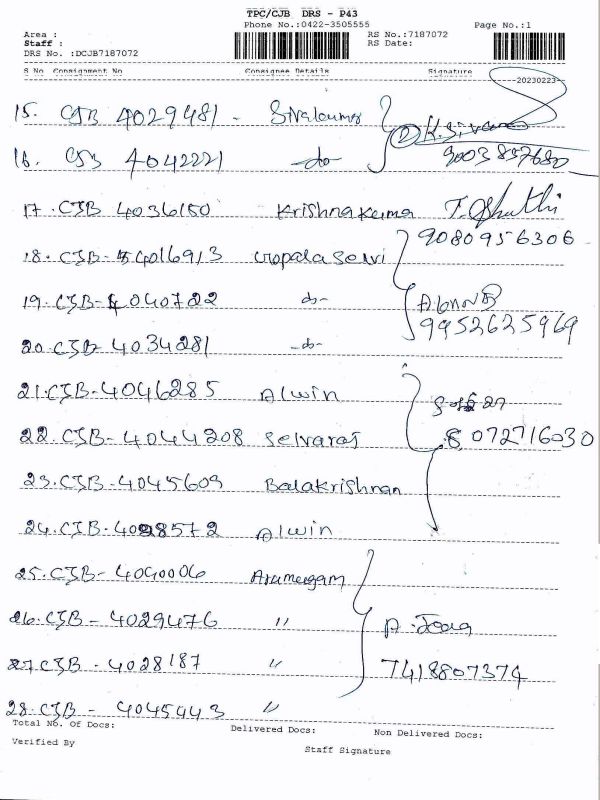 TPC/CJB DRS - P43
Phone No.:0422-3505555 Page No.:1
Area : RS No.:7187072
Staff : RS Date:
DRS No. :DCJB7187072
S No Consignment No Consignee Details Signature
20230223
15. CJB 4029481 - Sivakumar K. Siva
16. CJB 4042221 -do- 9003857680
17. CJB 4036150 Krishna Kumar
9080956306
18. CJB - 4016913 Gopala Selvi
19. CJB - 4040722 -do-
9952625969
20. CJB 4034281 -do-
21. CJB - 4046285 Alwin
22. CJB - 4044208 Selvaraj 8072716030
23. CJB - 4045609 Balakrishnan
24. CJB - 4098572 Alwin
25. CJB - 4040006 Arumugam
26. CJB - 4029476 "
27. CJB - 4028187 " 7418807374
28. CJB - 4045443 "
Total No. Of Docs: Delivered Docs: Non Delivered Docs:
Verified By Staff Signature